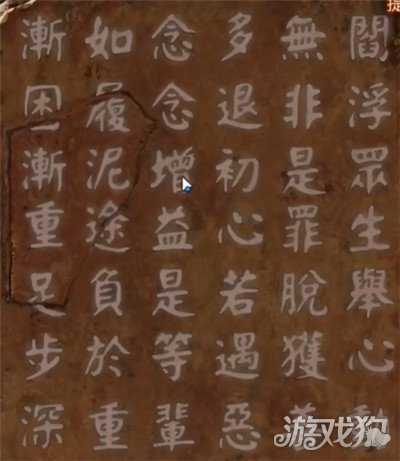 閻浮眾生舉心動
無非是罪脫獲善
多退初心若遇惡
念念增益是等輩
如履泥途負於重
漸困漸重足步深
提
游戏狗